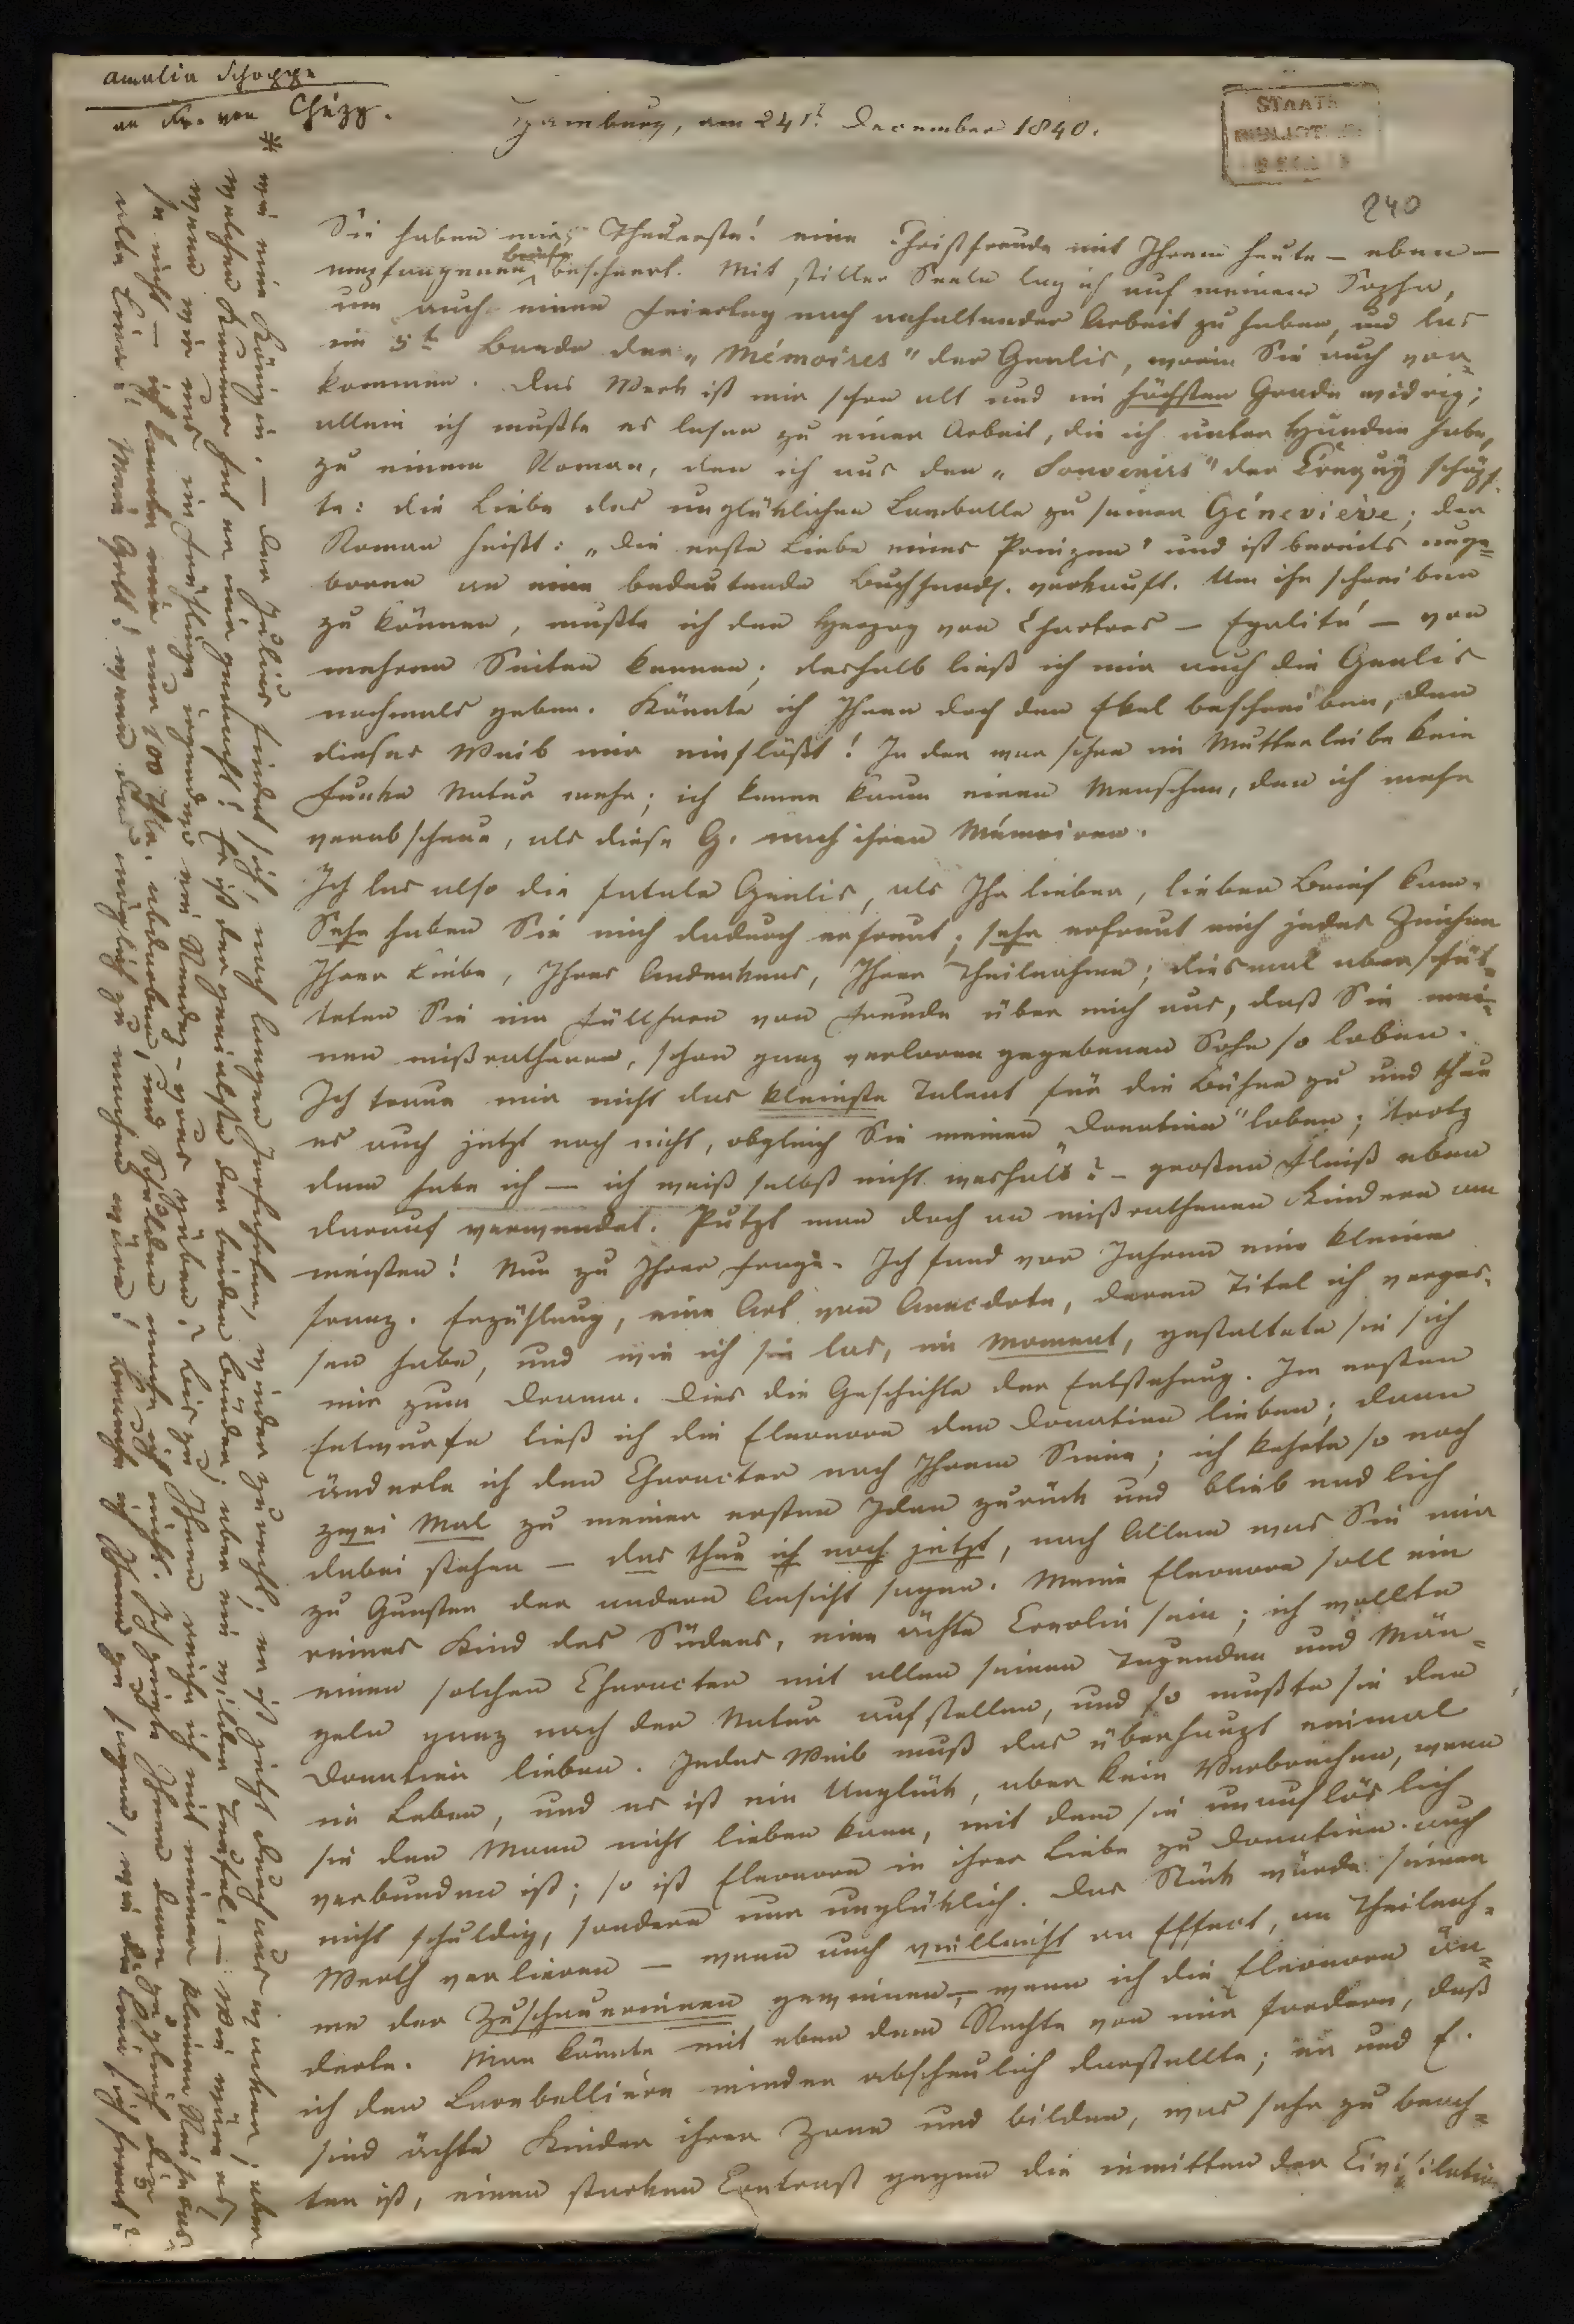 Amalia Schoppe
an Fr. von Chézy.
Hamburg, am 24st. December 1840.
STAATS
BIBLIOTHEK
BERLIN
240
Sie haben mir, Theuerste! eine Christfreude mit Ihrem heute – eben –
empfangenen Briefe bescheert. Mit stiller Seele lag ich auf meinem Sopha,
um auch einen Feiertag nach anhaltender Arbeit zu haben, und las
im 5t Bande der „Mémoires" der Genlis, worin Sie auch vor=
kommen. Das Werk ist mir schon alt und im höchsten Grade widrig;
allein ich mußte es lesen zu einer Arbeit, die ich unter Händen habe,
zu einem Roman, den ich aus den „Souvenirs" der Créquy schöpf=
te: die Liebe des unglüklichen Lamballe zu seiner Géneviève; der
Roman heißt: „die erste Liebe eines Prinzen" und ist bereits unge=
boren an eine bedeutende Buchhandl. verkauft. Um ihn schreiben
zu können, mußte ich den Herzog von Chartres – Egalité – von
mehren Seiten kennen; deshalb ließ ich mir auch die Genlis
nochmals geben. Könnte ich Ihnen doch den Ekel beschreiben, den
dieses Weib mir einflößt! In der war schon im Mutterleibe kein
Funke Natur mehr; ich kenne kaum einen Menschen, den ich mehr
verabscheue, als diese G. nach ihren Mémoiren.
Ich las also die fatale Genlis, als Ihr lieber, lieber Brief kam.
Sehr haben Sie mich dadurch erfreut; sehr erfreut mich jedes Zeichen
Ihrer Liebe, Ihres Andenkens, Ihrer Theilnahme; diesmal aber schüt=
teten Sie ein Füllhorn von Freude über mich aus, daß Sie mei=
nen mißrathenen, schon ganz verloren gegebenen Sohn so loben.
Ich traue mir nicht das kleinste Talent für die Bühne zu und thue
es auch jetzt noch nicht, obgleich Sie meinen „Donatien" loben; trotz
dem habe ich – ich weiß selbst nicht weshalb? – großen Fleiß eben
darauf verwendet. Putzt man doch an mißrathenen Kindern am
meisten! Nun zu Ihrer Frage. Ich fand vor Jahren eine kleine
franz. Erzählung, eine Art von Anecdote, deren Titel ich verges=
sen habe, und wie ich sie las, im Moment, gestaltete sie sich
mir zum Drama. Dies die Geschichte der Entstehung. Im ersten
Entwurfe ließ ich die Eleonore den Donatien lieben; dann
änderte ich den Character nach Ihrem Sinne; ich kehrte so noch
zwei Mal zu meiner ersten Idee zurük und blieb endlich
dabei stehen – das thue ich noch jetzt, nach Allem was Sie mir
zu Gunsten der andern Ansicht sagen. Meine Eleonore soll ein
reines Kind des Südens, eine ächte Creolin sein; ich wollte
einen solchen Character mit allen seinen Tugenden und Män=
geln ganz nach der Natur aufstellen, und so mußte sie den
Donatien lieben. Jedes Weib muß das überhaupt einmal
im Leben, und es ist ein Unglük, aber kein Verbrechen, wenn
sie den Mann nicht lieben kann, mit dem sie unauflöslich
verbunden ist; so ist Eleonore in ihrer Liebe zu Donatien auch
nicht schuldig, sondern nur unglüklich. Das Stük würde seinen
Werth verlieren – wenn auch vielleicht an Effect, an Theilnah=
me der Zuschauerinnen gewinnen – wenn ich die Eleonore än=
derte. Man könnte mit eben dem Rechte von mir fordern, daß
ich den Larebellière minder abscheulich darstellte; er und E.
sind ächte Kinder ihrer Zone und bilden, was sehr zu beach=
ten ist, einen starken Contrast gegen die inmitten der Civilisation
* wie eine Königin. – Der Julius findet sich, nach langen Irrfahrten, wieder zurecht; er ist jetzt durchaus waker; aber
welchen Kummer hat er mir gemacht! Er ist der genialste der beiden Brüder, aber ein wilder Teufel. – Wie wäre es,
wenn wir uns im Frühlinge irgendwo ein Rendez-vous gäben? Bis zu Ihnen reiche ich mit meiner kleinen Reisekasse
ja nicht – ich
alle Eine! Mein Gott! wenn das möglich zu machen wäre!